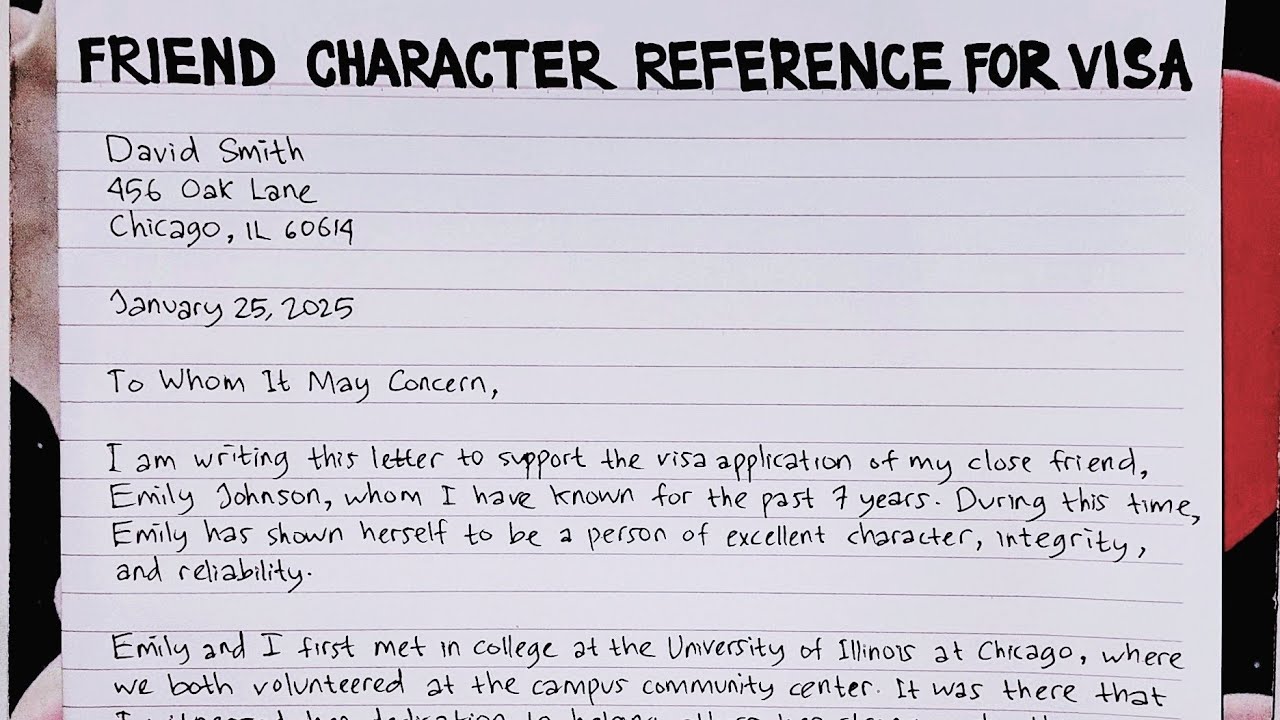 FRIEND CHARACTER REFERENCE FOR VISA
David Smith
456 Oak Lane
Chicago, IL 60614
January 25, 2025
To Whom It May Concern,
I am writing this letter to support the visa application of my close friend,
Emily Johnson, whom I have known for the past 7 years. During this time,
Emily has shown herself to be a person of excellent character, integrity,
and reliability.
Emily and I first met in college at the University of Illinois at Chicago, where
we both volunteered at the campus community center. It was there that